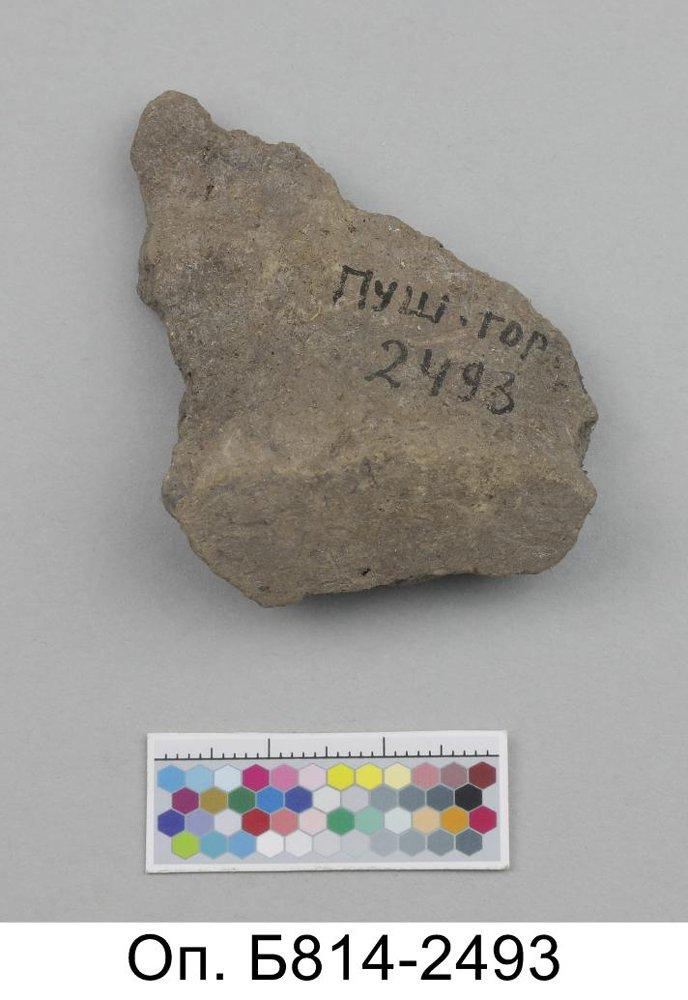 Пуш. гор.
2493
Оп. Б814-2493